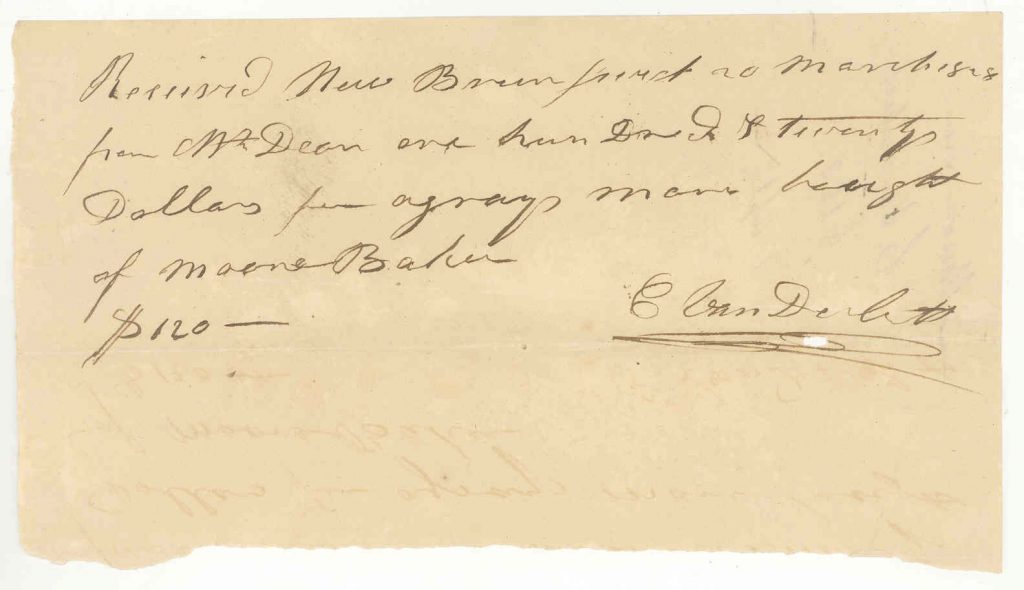 Received New Brunswick 20 March 1828
from Mr Dean one hun Dred & twenty
Dollars for a gray mare bought
of Moore Baker
$120 —
C Van Derbett